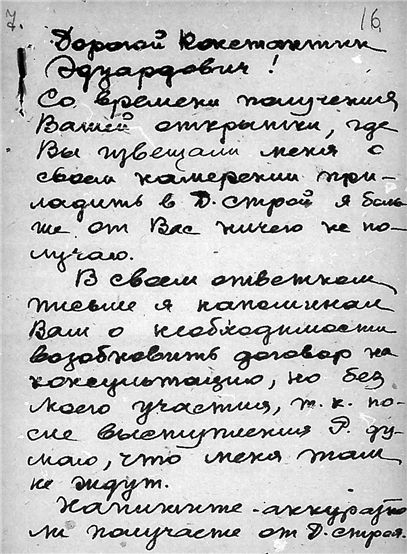 7. 16
Дорогой Константин
Эдуардович!
Со времени получения
Вашей открытки, где
Вы извещали меня о
своем намерении при-
ладить в Д. строй я боль
ше от Вас ничего не по-
лучаю.
В своем ответном
письме я напоминал
Вам о необходимости
возобновить договор на
консультацию, но без
моего участия, т.к. по-
сле выступления Р. ду-
маю, что меня там
не ждут.
Напишите - аккуратно
ли получаете от Д. строя.